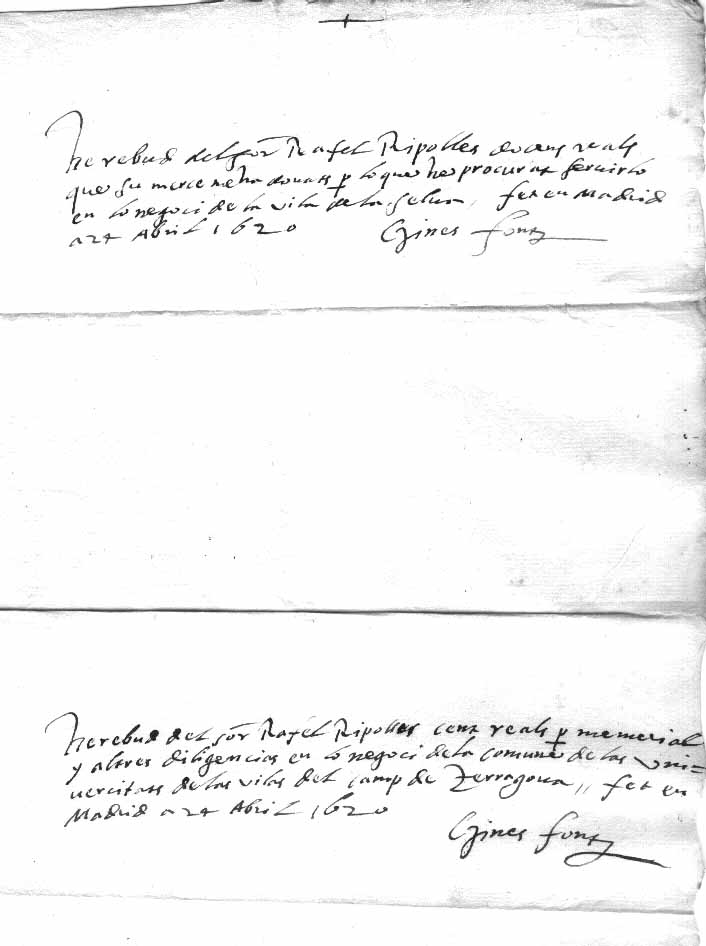 he rebud del sor Rafel Ripolles docens reals
que su merce me ha donats p lo que he procurat servirlo
en lo negoci de la vila de la Selva, fet en Madrid
a 24 Abril 1620 Gines Font
he rebud del sor Rafel Ripolles cent reals p memorial
y altres diligencias en lo negoci de la comune de las uni=
vercitats de las vilas del camp de Terragona,, fet en
Madrid a 24 Abril 1620
Gines Font